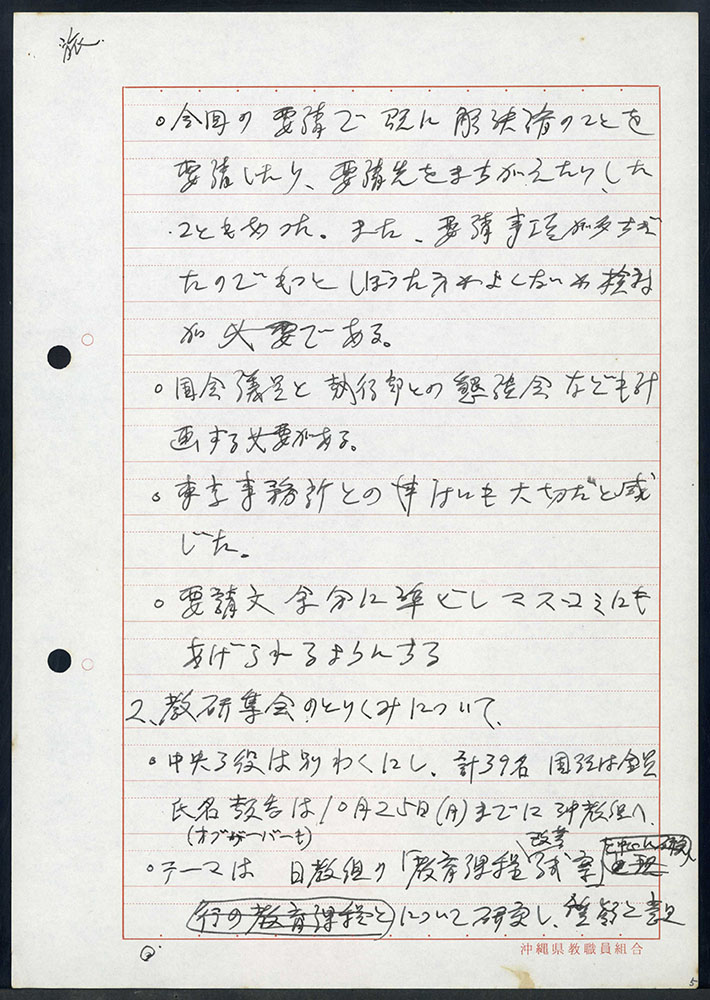 旅
○今回の要請で既に解決済のことを
要請したり、要請先をまちがえたりした
こともあった。また、要請事項が多すぎ
たのでもっとしぼった方がよくないか検討
が必要である。
○国会議員と執行部との懇談会なども計
画する必要がある。
○東京事務所との連けいも大切だと感
じた。
○要請文余分に準びしマスコミにも
あげられるようにする
2、教研集会のとりくみについて、
○中央司役は別わくにし、計39名 国強は全員
氏名報告は10月25日(月)までに沖教組へ、
(オブザーバーも)
改革
○テーマは 日教組の「教育課程試案」
行の教育課程と について研究し、
沖縄県教職員組合
5